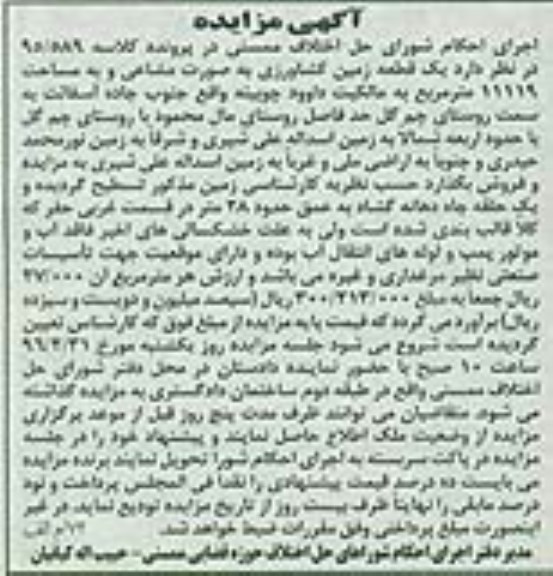 آگهی مزایده
اجرای احکام شورای حل اختلاف ممسنی در پرونده کلاسه ۹۵/۵۸۹
در نظر دارد یک قطعه زمین کشاورزی به صورت مشاعی و به مساحت
۱۱۱۱۹ مترمربع به مالکیت داوود چوبینه واقع جنوب جاده آسفالت به
سمت روستای چم گل حد فاصل روستای مال محمود با روستای چم گل
با حدود اربعه شمالا به زمین اسداله علی شیری و شرقا به زمین نورمحمد
حیدری و جنوبا به اراضی ملی و غربا به زمین اسداله علی شیری به مزایده
و فروش بگذارد حسب نظریه کارشناسی زمین مذکور تسطیح گردیده و
یک حلقه چاه دهانه گشاد به عمق حدود ۳۸ متر در قسمت غربی حفر که
کلا قالب بندی شده است ولی به علت خشکسالی های اخیر فاقد آب و
موتور پمپ و لوله های انتقال آب بوده و دارای موقعیت جهت تأسیسات
صنعتی نظیر مرغداری و غیره می باشد و ارزش هر مترمربع آن ۲۷/۰۰۰
ریال جمعا به مبلغ ۳۰۰/۲۱۳/۰۰۰ ریال (سیصد میلیون و دویست و سیزده
ریال) برآورد می گردد که قیمت پایه مزایده از مبلغ فوق که کارشناس تعیین
گردیده است شروع می شود جلسه مزایده روز یکشنبه مورخ ۹۶/۲/۳۱
ساعت ۱۰ صبح با حضور نماینده دادستان در محل دفتر شورای حل
اختلاف ممسنی واقع در طبقه دوم ساختمان دادگستری به مزایده گذاشته
می شود. متقاضیان می توانند ظرف مدت پنج روز قبل از موعد برگزاری
مزایده از وضعیت ملک اطلاع حاصل نمایند و پیشنهاد خود را در جلسه
مزایده در پاکت سربسته به اجرای احکام شورا تحویل نمایند برنده مزایده
می بایست ده درصد قیمت پیشنهادی را نقدا فی المجلس پرداخت و نود
درصد مابقی را نهایتا ظرف بیست روز از تاریخ مزایده تودیع نماید. در غیر
اینصورت مبلغ پرداختی وفق مقررات ضبط خواهد شد. م الف
مدیر دفتر اجرای احکام شوراهای حل اختلاف حوزه قضایی ممسنی - حبیب اله کیانیان